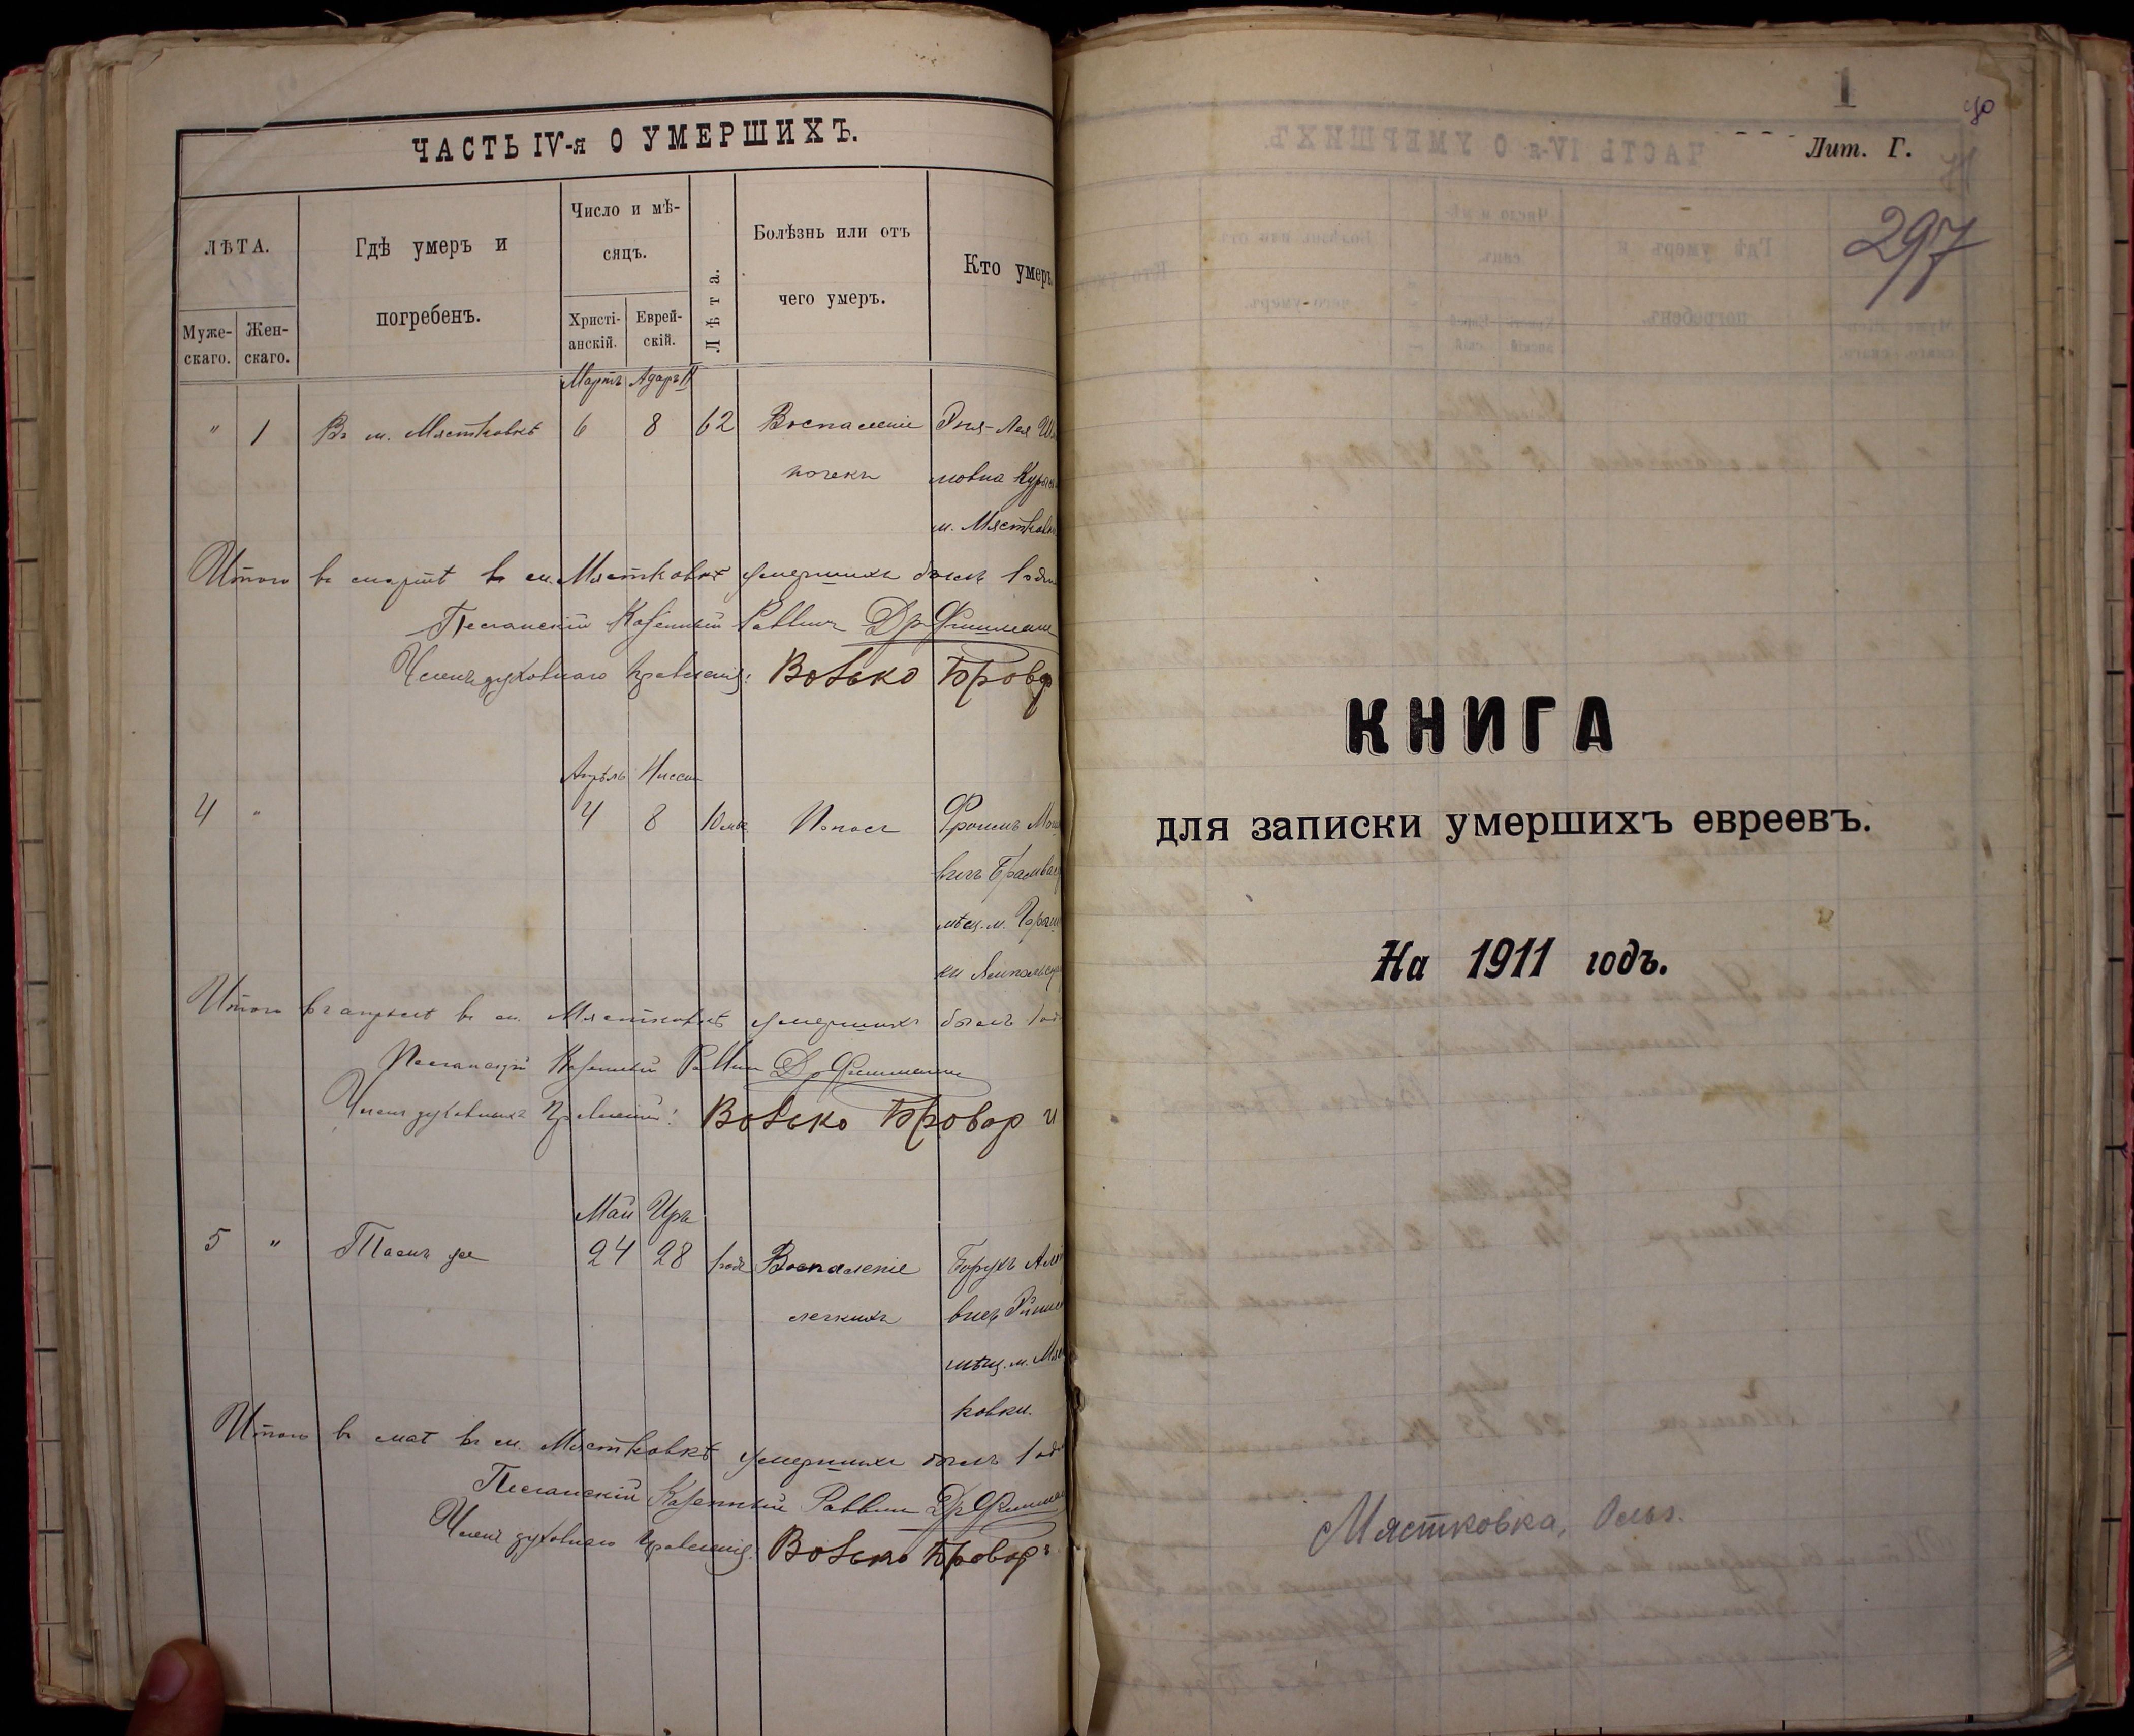 ЧАСТЬ IV-я О УМЕРШИХЪ.
ЛѢТА.
Муже-
скаго.
Жен-
скаго.
Гдѣ умеръ и
погребенъ.
Число и мѣ-
сяцъ.
Христі-
анскій.
Еврей-
скій.
Лѣта.
Болѣзнь или отъ
чего умеръ.
Кто умеръ
Мартъ Адаръ II
" 1 Въ м. Мястковкѣ 6 8 62 Воспаленіе Рыся-Лея
почекъ мовна
м. Мястков
Итого въ мартѣ въ м. Мястковкѣ умершихъ былъ 1
Песчанскій Казенный Раввинъ Др Фишман
Членъ духовнаго правленія: Вовько Бровар
Апрѣль Ниссанъ
4 " 4 8 10 мѣс Поносъ Фроимъ
вичъ
мѣщ. м.
ки
Итого въ апрѣлѣ въ м. Мястковкѣ умершихъ былъ 1
Песчанскій Казенный Раввинъ Др Фишман
Членъ духовнаго Правленія: Вовько Бровар
Май Иръ
5 " Тамъ же 24 28 1 годъ Воспаленіе Борухъ
легкихъ вичъ
мѣщ. м. Мяс
ковки.
Итого въ маѣ въ м. Мястковкѣ умершихъ былъ 1
Песчанскій Казенный Раввинъ Др Фишман
Членъ духовнаго правленія: Вовько Броваръ
1
Лит. Г.
297
КНИГА
для записки умершихъ евреевъ.
На 1911 годъ.
Мястковка, Ольг.